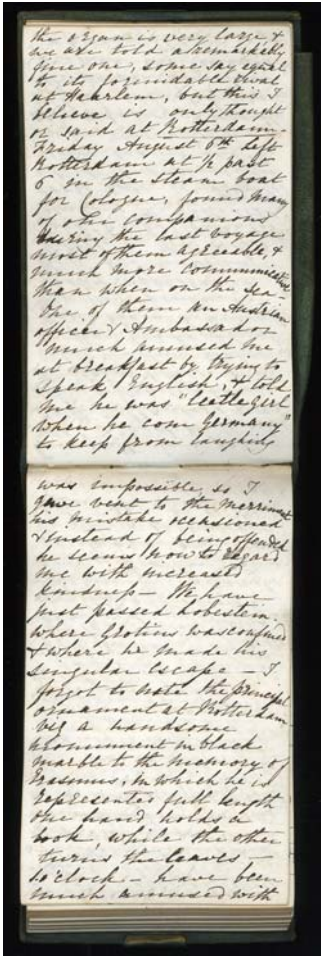 the organ is very large &
we are told a remarkably
fine one, some say equal
to its formidable rival
at Haarlem, but this I
believe is only thought
or said at Rotterdam.
Friday August 6th left
Rotterdam at ½ past
6 in the steam boat
for Cologne, found many
of our companions
during the last voyage
most of them agreeable, &
much more communicative
than when on the sea -
One of them an Austrian
officer & Ambassador
much amused me
at breakfast by trying to
speak English, & told
me he was "leetle girl
when he com Germany"
to keep from laughing
was impossible, so I
gave vent to the merriment
his mistake occasioned
& instead of being offended
he seems now to regard
me with increased
kindness - We have
just passed
where Grotius was confined
& where he made his
singular escape - I
forgot to note the principal
ornament at Rotterdam
viz a handsome
monument in black
marble to the memory of
Erasmus, in which he is
represented full length
one hand holds a
book, while the other
turns the leaves -
o'clock - have been
much amused with